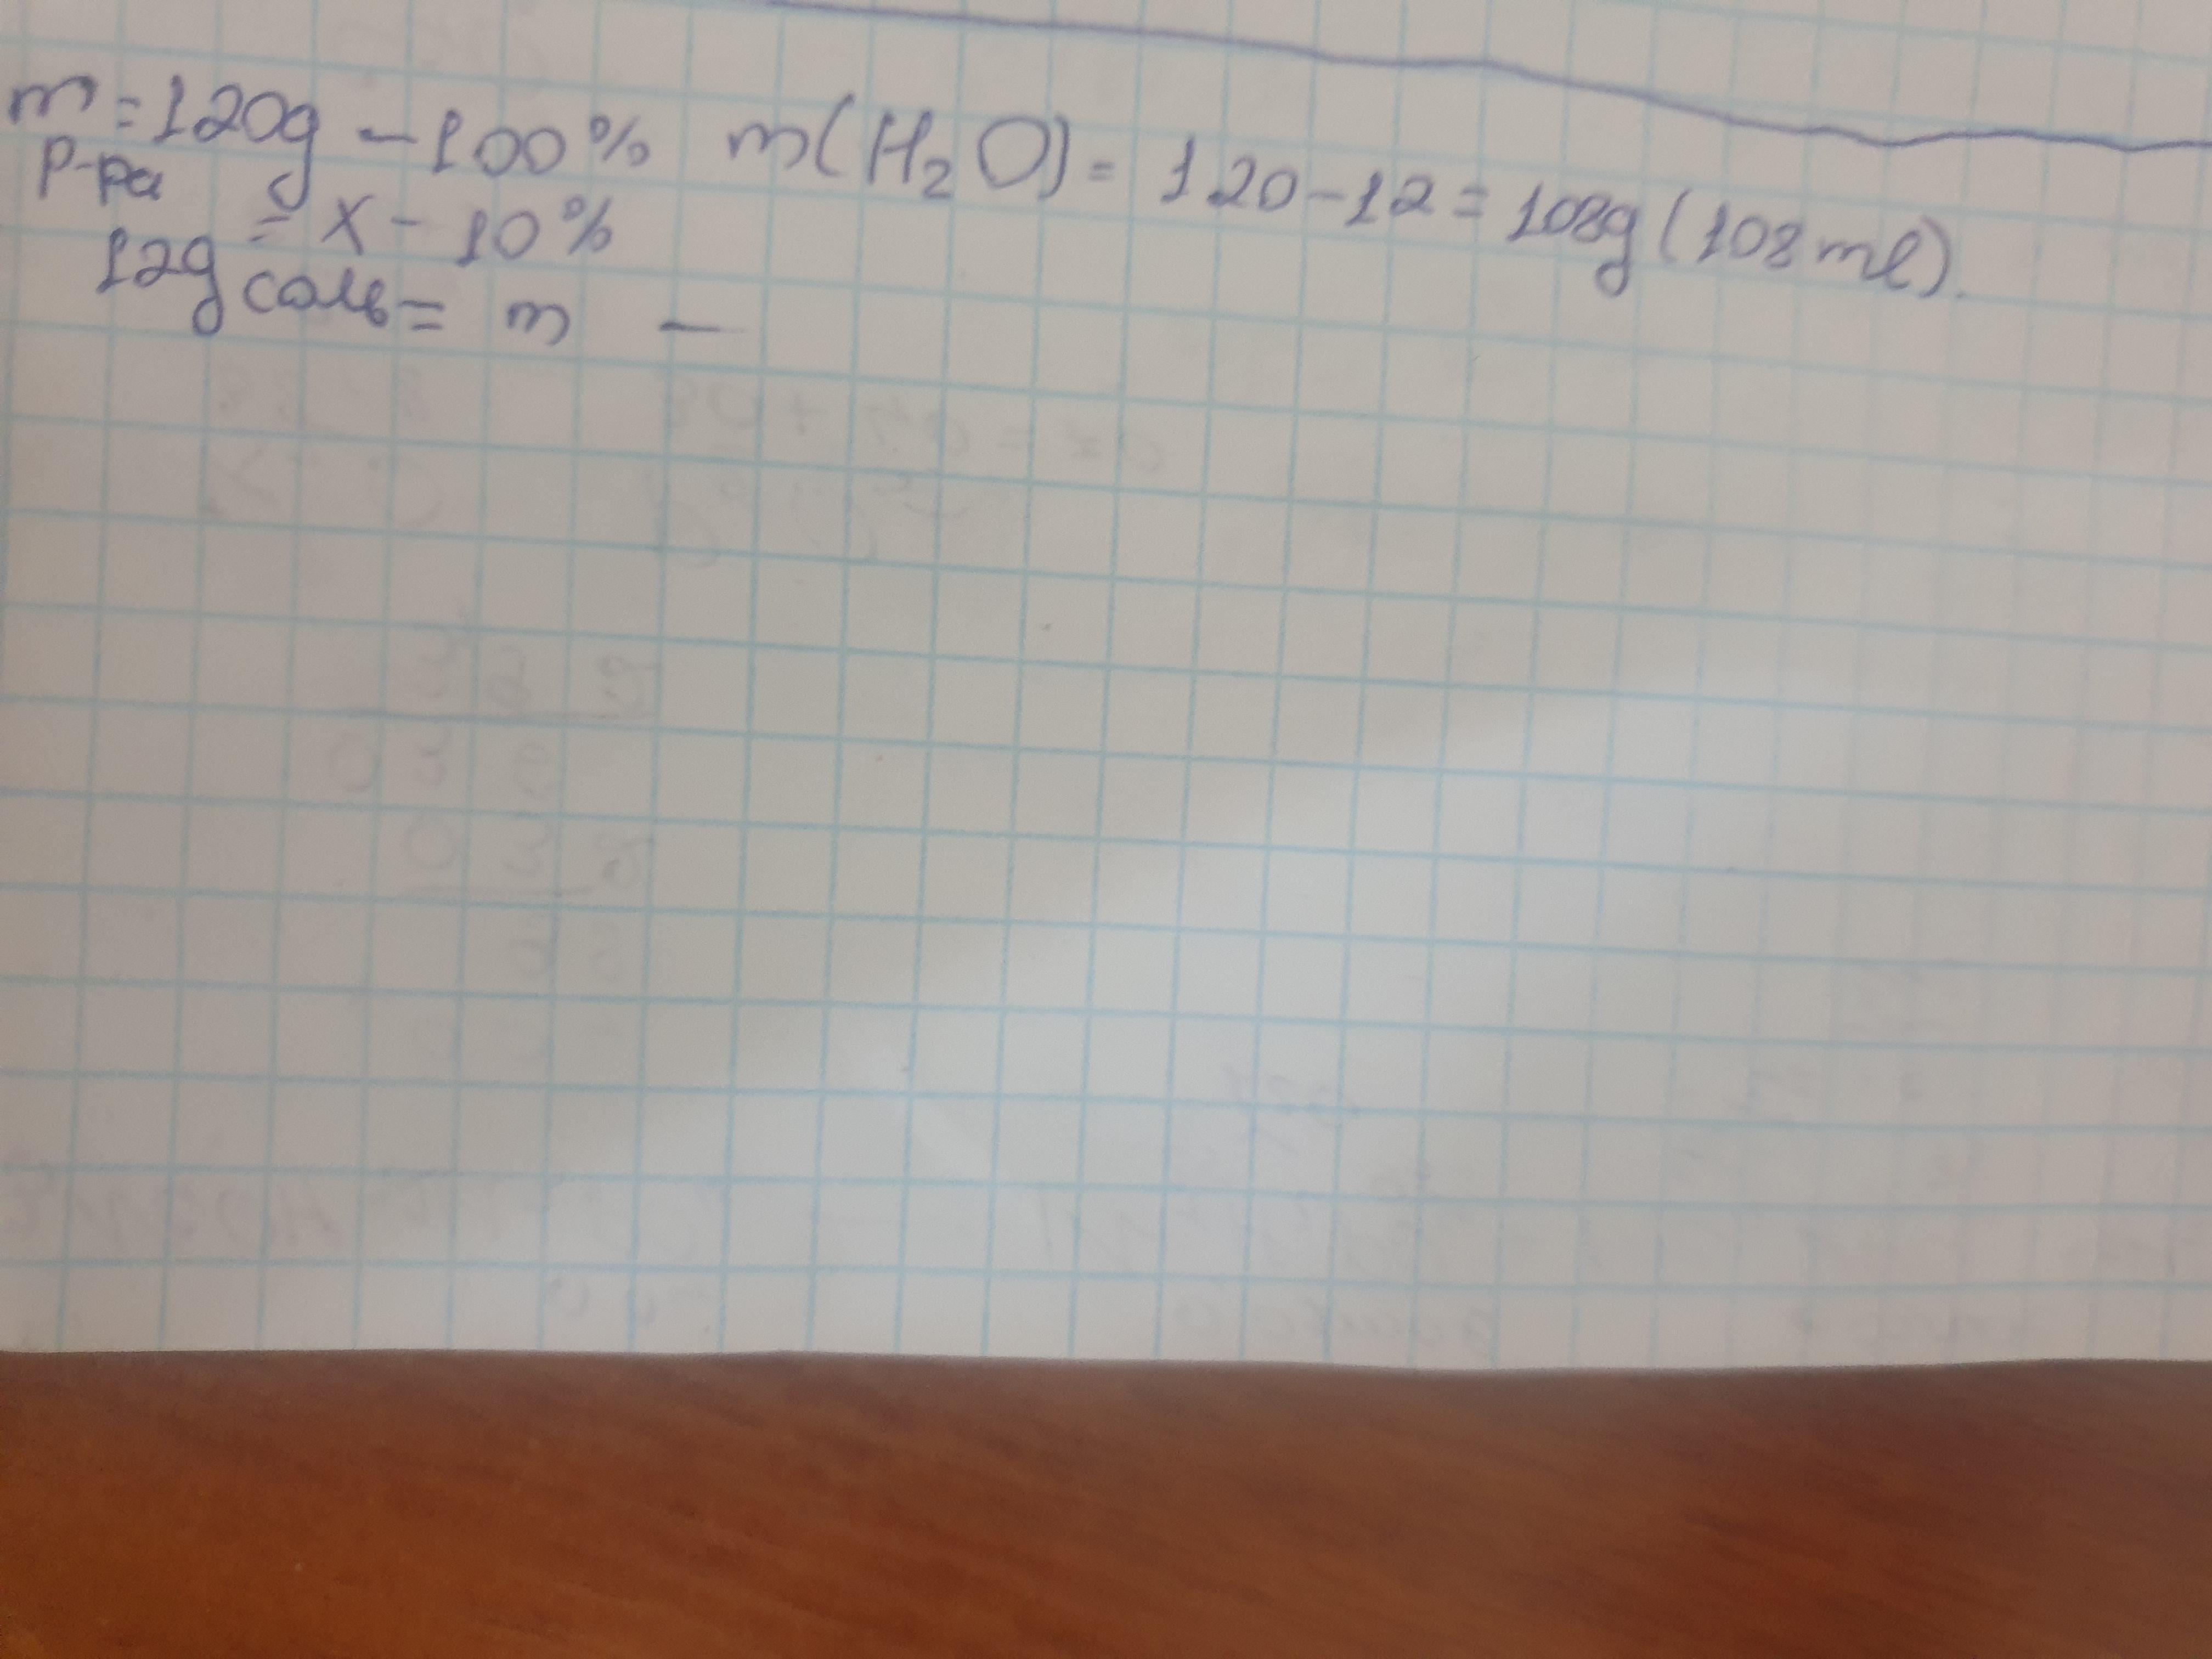 m=120g - 100% m(H₂O)= 120-12=108g (108ml).
р-ра
= x - 10%
12g соль= m -